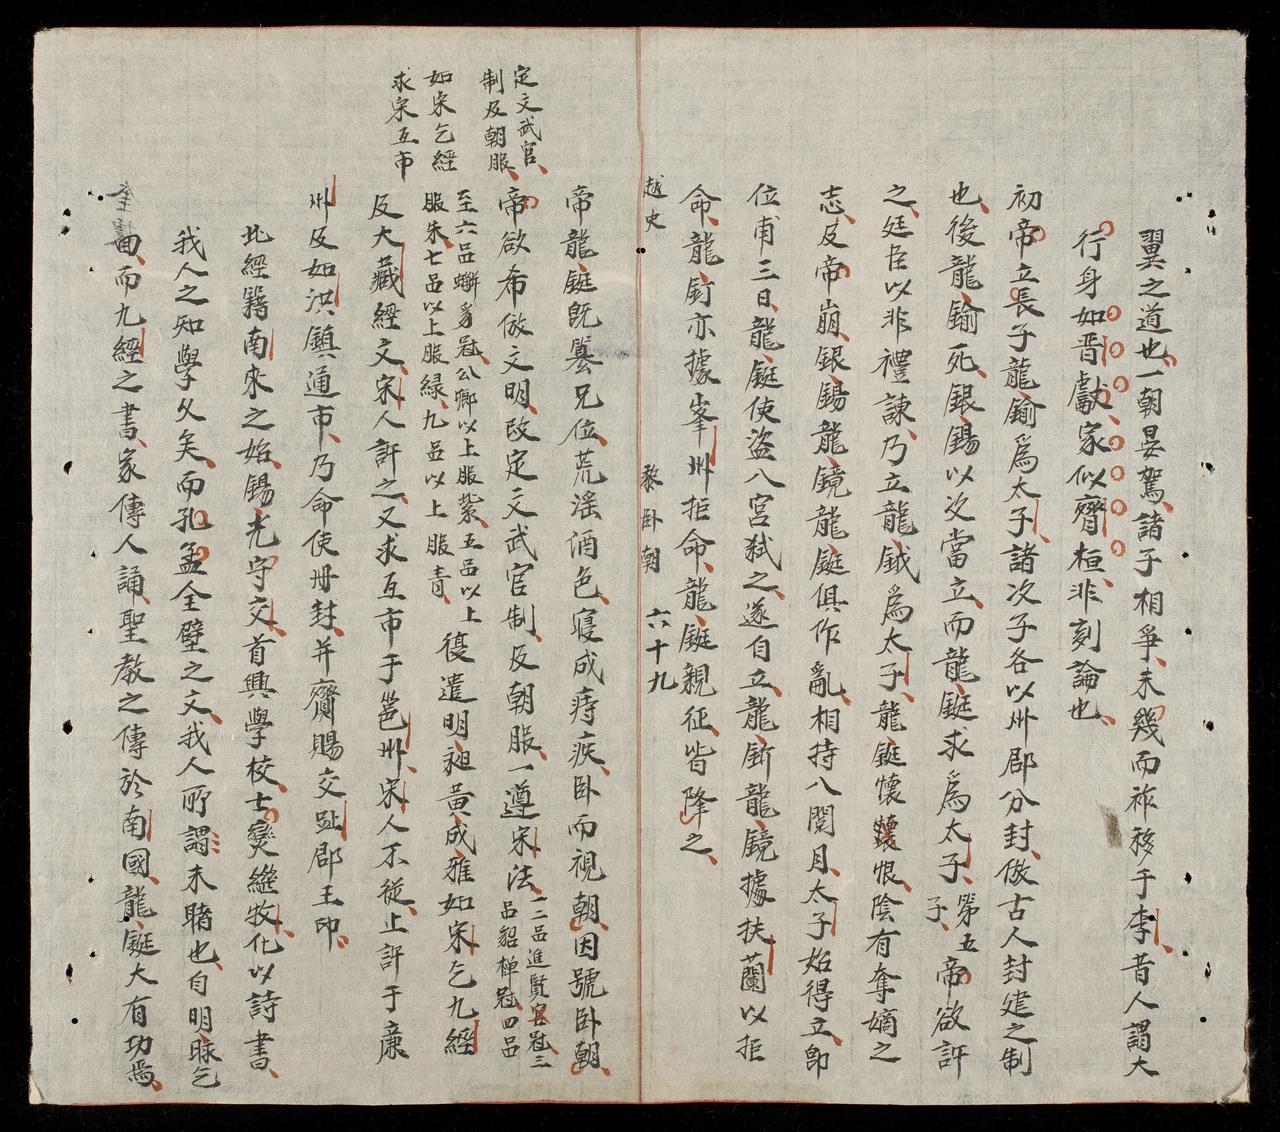 翼之道也一朝晏駕諸子相爭未幾而祚移于李昔人謂大
行身如晋獻家似齊桓非刻論也
初帝立長子龍鍮爲太子諸次子各以州郡分封倣古人封建之制
也後龍鍮死銀錫以次當立而龍鋌求爲太子第五子帝欲許
之廷臣以非禮諫乃立龍鉞爲太子龍鋌懷恨陰有奪嫡之
志及帝崩銀錫龍鏡龍鋌俱作亂相持八閱月太子始得立即
位甫三日龍鋌使盜入宮弑之遂自立龍釿龍鏡據扶蘭以拒
命龍釘亦據峯州拒命龍鋌親征皆降之
越史 黎卧朝 六十九
帝龍鋌旣簒兄位荒滛酒色寢成痔疾卧而視朝因號卧朝
定文武官
制及朝服
帝欲希倣文明改定文武官制及朝服一遵宋法一二品進賢冠三
品貂蟬冠四品
至六品蟬豸冠公卿以上服紫五品以上
服朱七品以上服緑九品以上服青復遣明昶黃成雅如宋乞九經
如宋乞經
求宋互市
及大藏經文宋人許之又求互市于邕州宋人不從止許于廉
州及如洪鎮通市乃命使册封并賷賜交趾郡王印
北經籍南來之始錫光守交首興學校士燮繼牧化以詩書
我人之知學久矣而孔孟全壁之文我人所謂未睹也自明昹乞
回而九經之書家傳人誦聖教之傳於南國龍鋌大有功焉